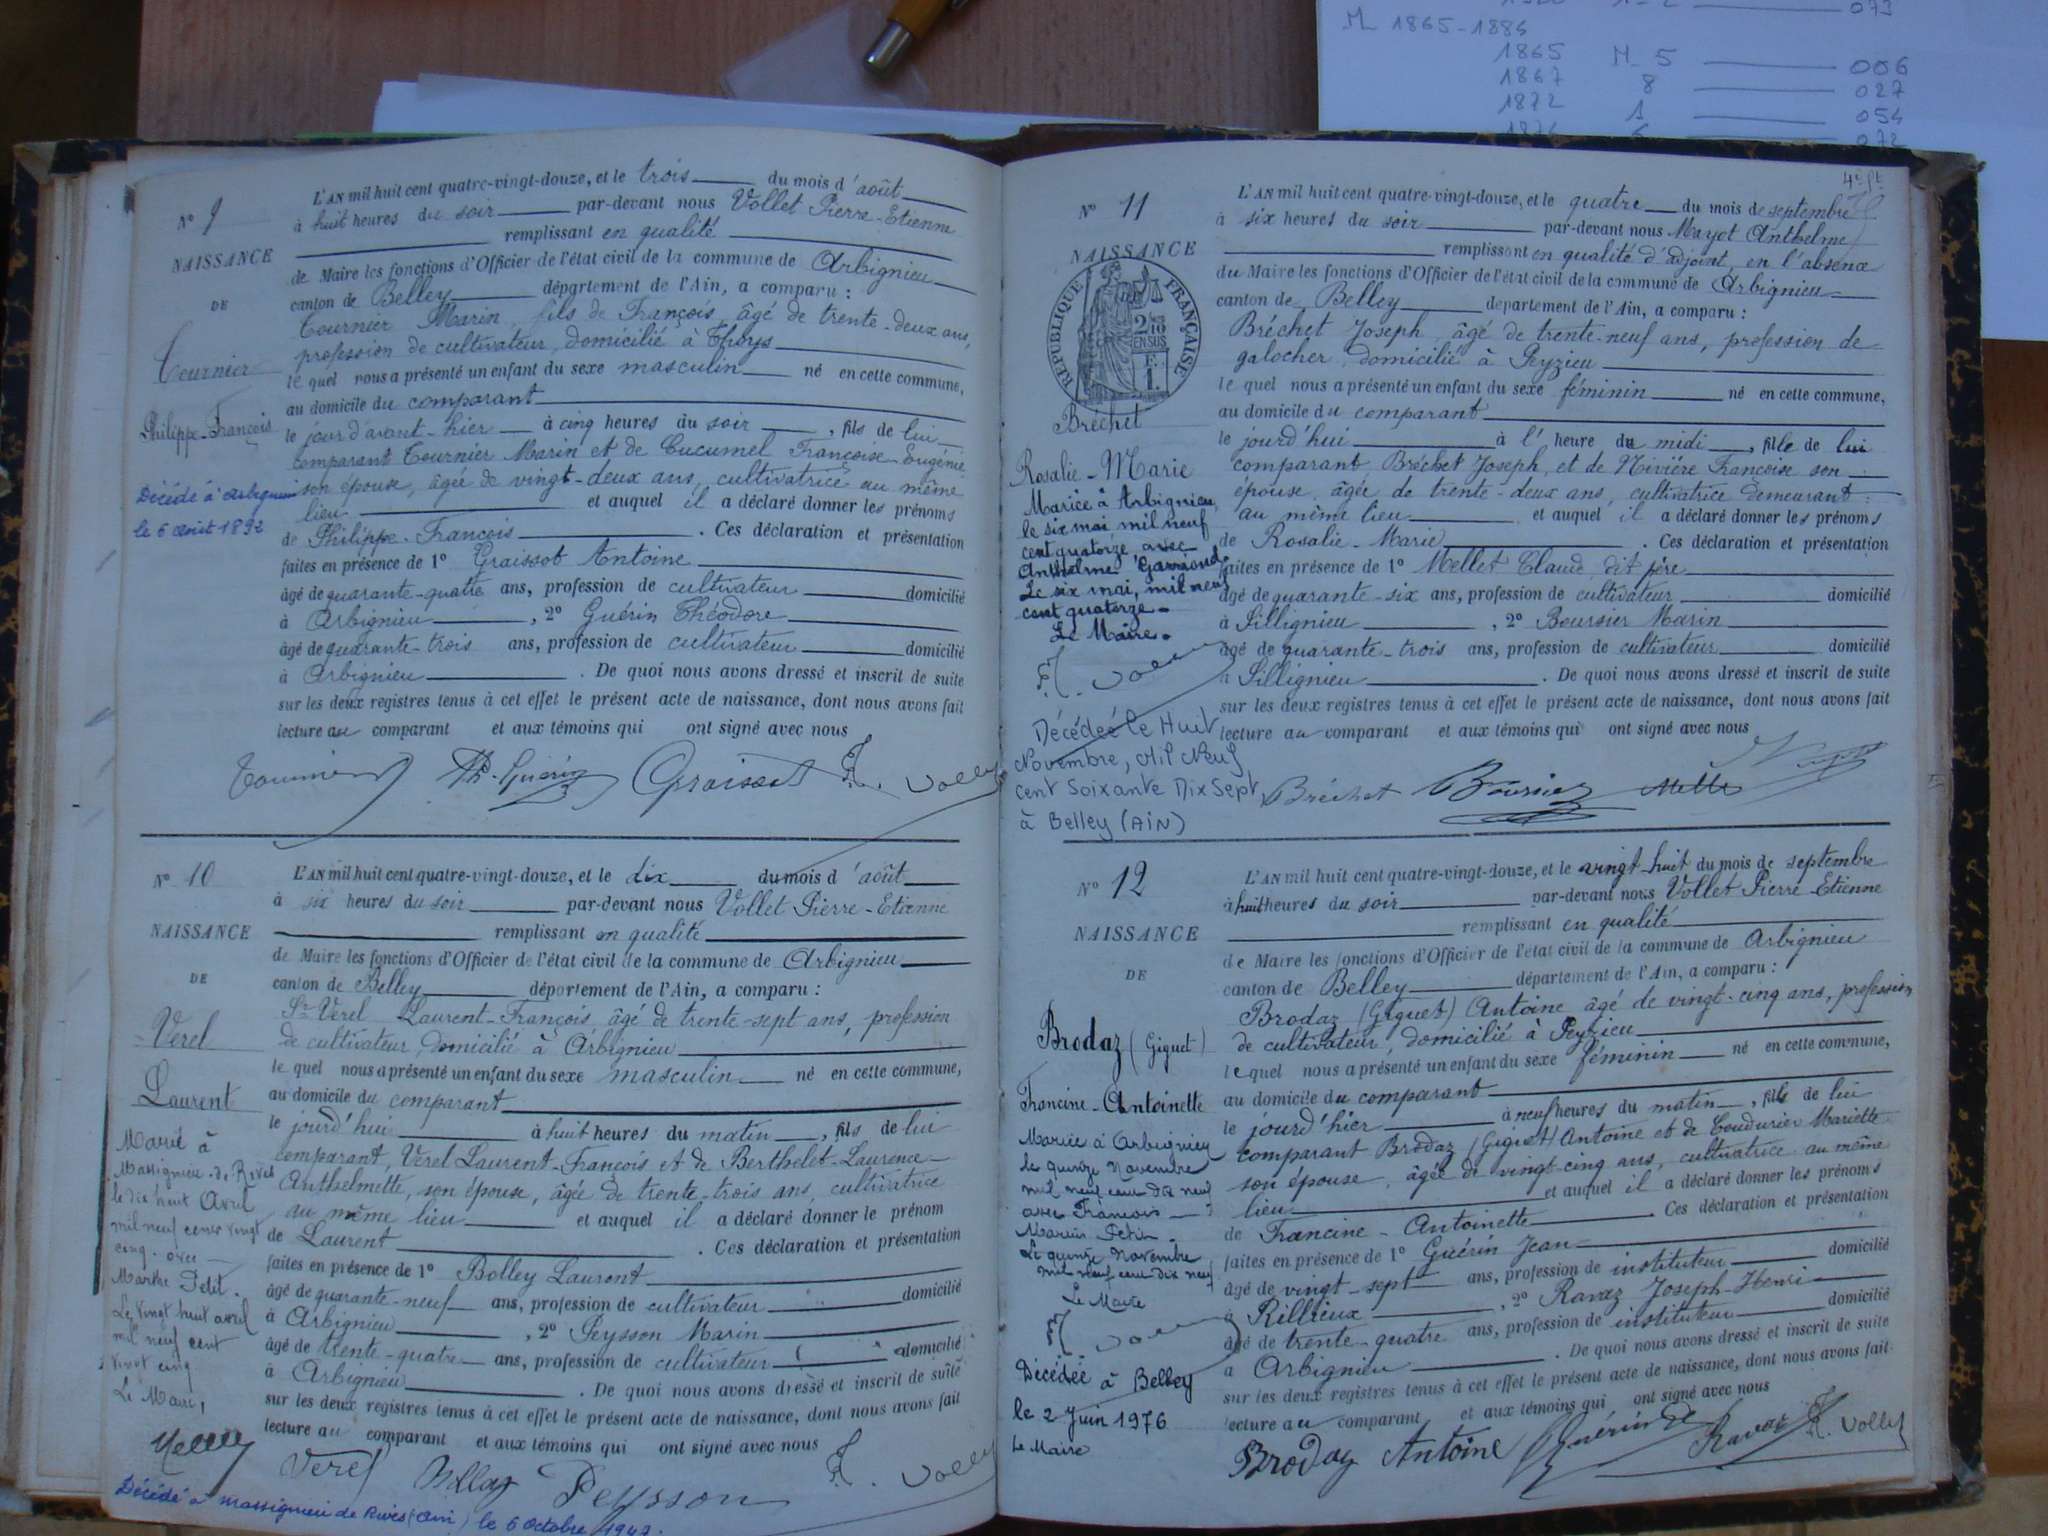 M 1865-1886
1865 M 5 006
1867 8 027
1872 1 054
072
N° 9
NAISSANCE
DE
Tournier
Philippe-François
Décédé à Arbignieu
le 6 août 1892
L'AN mil huit cent quatre-vingt-douze, et le trois du mois d'août
à huit heures du soir par-devant nous Vollet Pierre-Etienne
remplissant en qualité
de Maire les fonctions d'Officier de l'état civil de la commune de Arbignieu
canton de Belley département de l'Ain, a comparu :
Tournier Marin, fils de François, âgé de trente-deux ans,
profession de cultivateur, domicilié à Thoys
le quel nous a présenté un enfant du sexe masculin né en cette commune,
au domicile du comparant
le jour d'avant-hier à cinq heures du soir, fils de lui
comparant Tournier Marin et de Cucumel Françoise-Eugénie
son épouse, âgée de vingt-deux ans, cultivatrice au même
lieu et auquel il a déclaré donner les prénoms
de Philippe-François. Ces déclaration et présentation
faites en présence de 1° Graissot Antoine
âgé de quarante-quatre ans, profession de cultivateur domicilié
à Arbignieu, 2° Guérin Théodore
âgé de quarante-trois ans, profession de cultivateur domicilié
à Arbignieu. De quoi nous avons dressé et inscrit de suite
sur les deux registres tenus à cet effet le présent acte de naissance, dont nous avons fait
lecture au comparant et aux témoins qui ont signé avec nous
Tournier Th. Guérin Graissot Vollet
N° 10
NAISSANCE
DE
Verel
Laurent
Marié à
Massignieu-de-Rives
le dix huit Avril
mil neuf cent vingt
cinq avec
Marthe Petit.
Le vingt huit avril
mil neuf cent
vingt cinq
Le Maire,
L'AN mil huit cent quatre-vingt-douze, et le dix du mois d'août
à six heures du soir par-devant nous Vollet Pierre-Etienne
remplissant en qualité
de Maire les fonctions d'Officier de l'état civil de la commune de Arbignieu
canton de Belley département de l'Ain, a comparu :
Sr Verel Laurent-François, âgé de trente-sept ans, profession
de cultivateur, domicilié à Arbignieu
le quel nous a présenté un enfant du sexe masculin né en cette commune,
au domicile du comparant
le jourd'hui à huit heures du matin, fils de lui
comparant, Verel Laurent-François et de Berthelet-Laurence-
Anthelmette, son épouse, âgée de trente-trois ans, cultivatrice
au même lieu et auquel il a déclaré donner le prénom
de Laurent. Ces déclaration et présentation
faites en présence de 1° Bolley Laurent
âgé de quarante-neuf ans, profession de cultivateur domicilié
à Arbignieu, 2° Peysson Marin
âgé de trente-quatre ans, profession de cultivateur domicilié
à Arbignieu. De quoi nous avons dressé et inscrit de suite
sur les deux registres tenus à cet effet le présent acte de naissance, dont nous avons fait
lecture au comparant et aux témoins qui ont signé avec nous
Verel Bolley Peysson Vollet
Décédé à Massignieu de Rives (Ain) le 6 Octobre 1947.
N° 11
NAISSANCE
RÉPUBLIQUE FRANÇAISE
2/10 EN SUS
F. 1.
Bréchet
Rosalie-Marie
Mariée à Arbignieu
le six mai mil neuf
cent quatorze avec
Anthelme Garraond
Le six mai, mil neuf
cent quatorze.
Le Maire.
Vollet
Décédée le Huit
Novembre, Mil Neuf
cent Soixante Dix Sept,
à Belley (AIN)
4e pt
L'AN mil huit cent quatre-vingt-douze, et le quatre du mois de septembre
à six heures du soir par-devant nous Mayot Anthelme
remplissant en qualité d'adjoint, en l'absence
du Maire les fonctions d'Officier de l'état civil de la commune de Arbignieu
canton de Belley département de l'Ain, a comparu :
Bréchet Joseph, âgé de trente-neuf ans, profession de
galocher, domicilié à Peyzieu
le quel nous a présenté un enfant du sexe féminin né en cette commune,
au domicile du comparant
le jourd'hui à l'heure du midi, fille de lui
comparant Bréchet Joseph, et de Nivière Françoise son
épouse, âgée de trente-deux ans, cultivatrice demeurant
au même lieu et auquel il a déclaré donner les prénoms
de Rosalie-Marie. Ces déclaration et présentation
faites en présence de 1° Mellet Claude, dit père
âgé de quarante-six ans, profession de cultivateur domicilié
à Sillignieu, 2° Boursier Marin
âgé de quarante-trois ans, profession de cultivateur domicilié
à Sillignieu. De quoi nous avons dressé et inscrit de suite
sur les deux registres tenus à cet effet le présent acte de naissance, dont nous avons fait
lecture au comparant et aux témoins qui ont signé avec nous
Bréchet Boursier Mellet
N° 12
NAISSANCE
DE
Brodaz (Giguet)
Francine-Antoinette
Mariée à Arbignieu
le quinze Novembre
mil neuf cent dix neuf
avec François
Marius Petit
Le quinze Novembre
mil neuf cent dix neuf
Le Maire
Vollet
Décédée à Belley
le 2 Juin 1976
Le Maire
L'AN mil huit cent quatre-vingt-douze, et le vingt-huit du mois de septembre
à huit heures du soir par-devant nous Vollet Pierre-Etienne
remplissant en qualité
de Maire les fonctions d'Officier de l'état civil de la commune de Arbignieu
canton de Belley département de l'Ain, a comparu :
Brodaz (Giguet) Antoine âgé de vingt-cinq ans, profession
de cultivateur, domicilié à Peyzieu
lequel nous a présenté un enfant du sexe féminin né en cette commune,
au domicile du comparant
le jourd'hier à neuf heures du matin, fille de lui
comparant Brodaz (Giguet) Antoine et de Coudurier Mariette
son épouse, âgée de vingt-cinq ans, cultivatrice au même
lieu et auquel il a déclaré donner les prénoms
de Francine-Antoinette. Ces déclaration et présentation
faites en présence de 1° Guérin Jean
âgé de vingt-sept ans, profession de instituteur domicilié
à Rillieux, 2° Ravaz Joseph-Henri
âgé de trente-quatre ans, profession de instituteur domicilié
à Arbignieu. De quoi nous avons dressé et inscrit de suite
sur les deux registres tenus à cet effet le présent acte de naissance, dont nous avons fait
lecture au comparant et aux témoins qui ont signé avec nous
Brodaz Antoine Guérin Ravaz Vollet